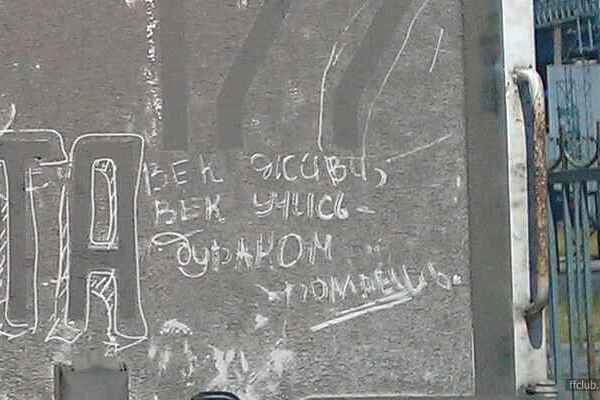 ТА
ВЕК ЖИВИ,
ВЕК УЧИСЬ -
дуРАКОМ
ПОМРЁШЬ.
ffclub.